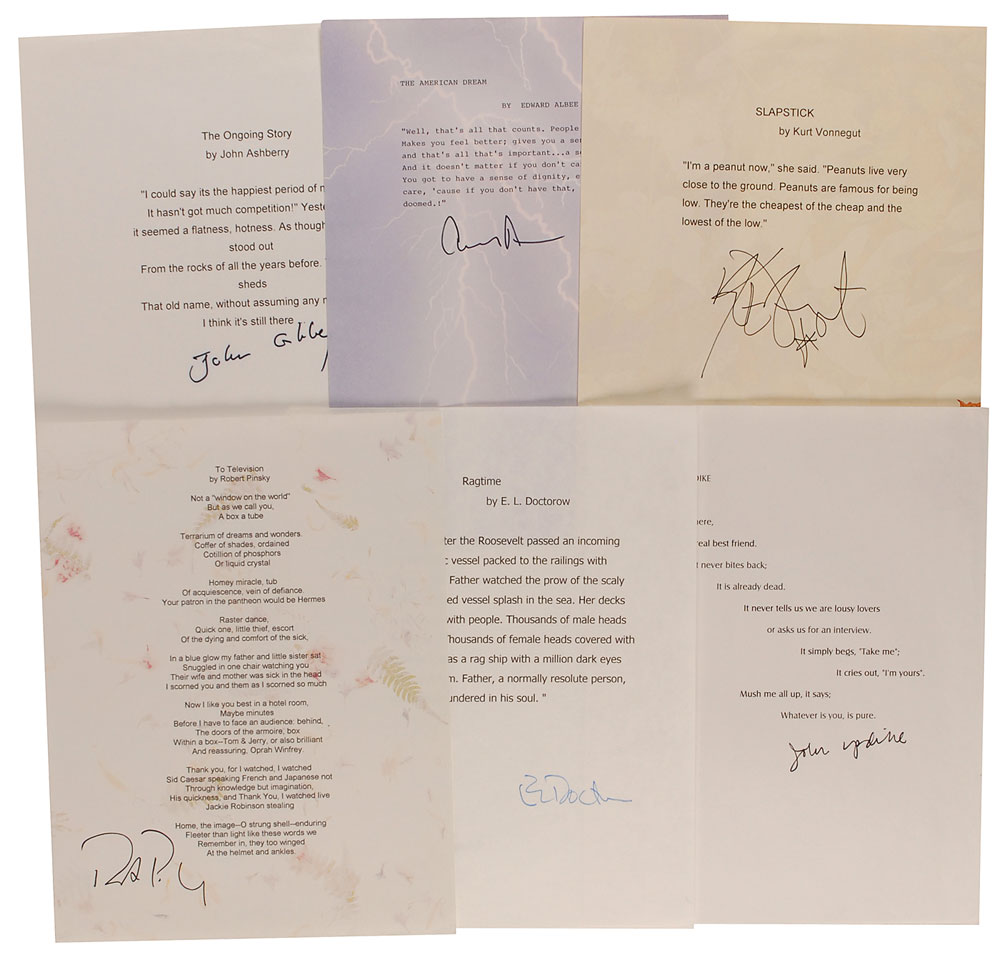 The Ongoing Story
by John Ashberry
"I could say its the happiest period of
It hasn't got much competition!"
it seemed a flatness, hotness. As though
stood out
From the rocks of all the years before.
sheds
That old name, without assuming any
I think it's still there
John
THE AMERICAN DREAM
BY EDWARD ALBEE
"Well, that's all that counts. People
Makes you feel better; gives you a
and that's all that's important...a
And it doesn't matter if you don't
You got to have a sense of dignity,
care, 'cause if you don't have that,
doomed.!"
SLAPSTICK
by Kurt Vonnegut
"I'm a peanut now," she said. "Peanuts live very
close to the ground. Peanuts are famous for being
low. They're the cheapest of the cheap and the
lowest of the low."
To Television
by Robert Pinsky
Not a "window on the world"
But as we call you,
A box a tube
Terrarium of dreams and wonders.
Coffer of shades, ordained
Cotillion of phosphors
Or liquid crystal
Homey miracle, tub
Of acquiescence, vein of defiance.
Your patron in the pantheon would be Hermes
Raster dance,
Quick one, little thief, escort
Of the dying and comfort of the sick,
In a blue glow my father and little sister sat
Snuggled in one chair watching you
Their wife and mother was sick in the head
I scorned you and them as I scorned so much
Now I like you best in a hotel room,
Maybe minutes
Before I have to face an audience: behind,
The doors of the armoire, box
Within a box--Tom & Jerry, or also brilliant
And reassuring, Oprah Winfrey.
Thank you, for I watched, I watched
Sid Caesar speaking French and Japanese not
Through knowledge but imagination,
His quickness, and Thank You, I watched live
Jackie Robinson stealing
Home, the image--O strung shell--enduring
Fleeter than light like these words we
Remember in, they too winged
At the helmet and ankles.
Ragtime
by E. L. Doctorow
the Roosevelt passed an incoming
vessel packed to the railings with
Father watched the prow of the scaly
vessel splash in the sea. Her decks
with people. Thousands of male heads
Thousands of female heads covered with
as a rag ship with a million dark eyes
Father, a normally resolute person,
in his soul. "
real best friend.
never bites back;
It is already dead.
It never tells us we are lousy lovers
or asks us for an interview.
It simply begs, "Take me";
It cries out, "I'm yours".
Mush me all up, it says;
Whatever is you, is pure.
John Updike